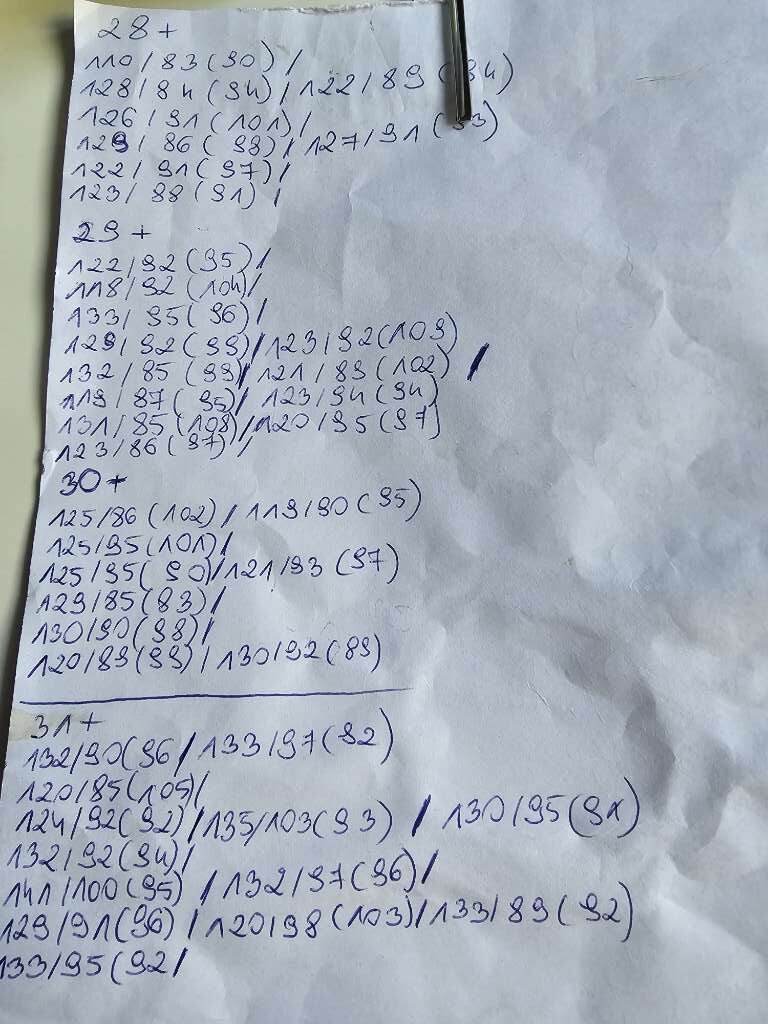 28+
110/83(90)/
128/84(94)/122/89(94)
126/91(101)/
129/86(98)/127/91(93)
122/91(97)/
123/88(91)/
29+
122/92(95)/
118/92(104)/
133/95(96)/
129/92(99)/123/92(109)
132/85(99)/121/89(102)/
119/87(95)/123/94(94)
131/85(108)/120/95(97)
123/86(97)/
30+
125/86(102)/119/90(95)
125/95(101)/
125/95(90)/121/93(97)
129/85(83)/
130/90(98)/
120/89(99)/130/92(89)
31+
132/90(96/133/97(92)
120/85(105)/
124/92(92)/135/103(93)/130/95(91)
132/92(94)/
141/100(95)/132/97(96)/
129/91(96)/120/98(103)/133/89(92)
133/95(92/